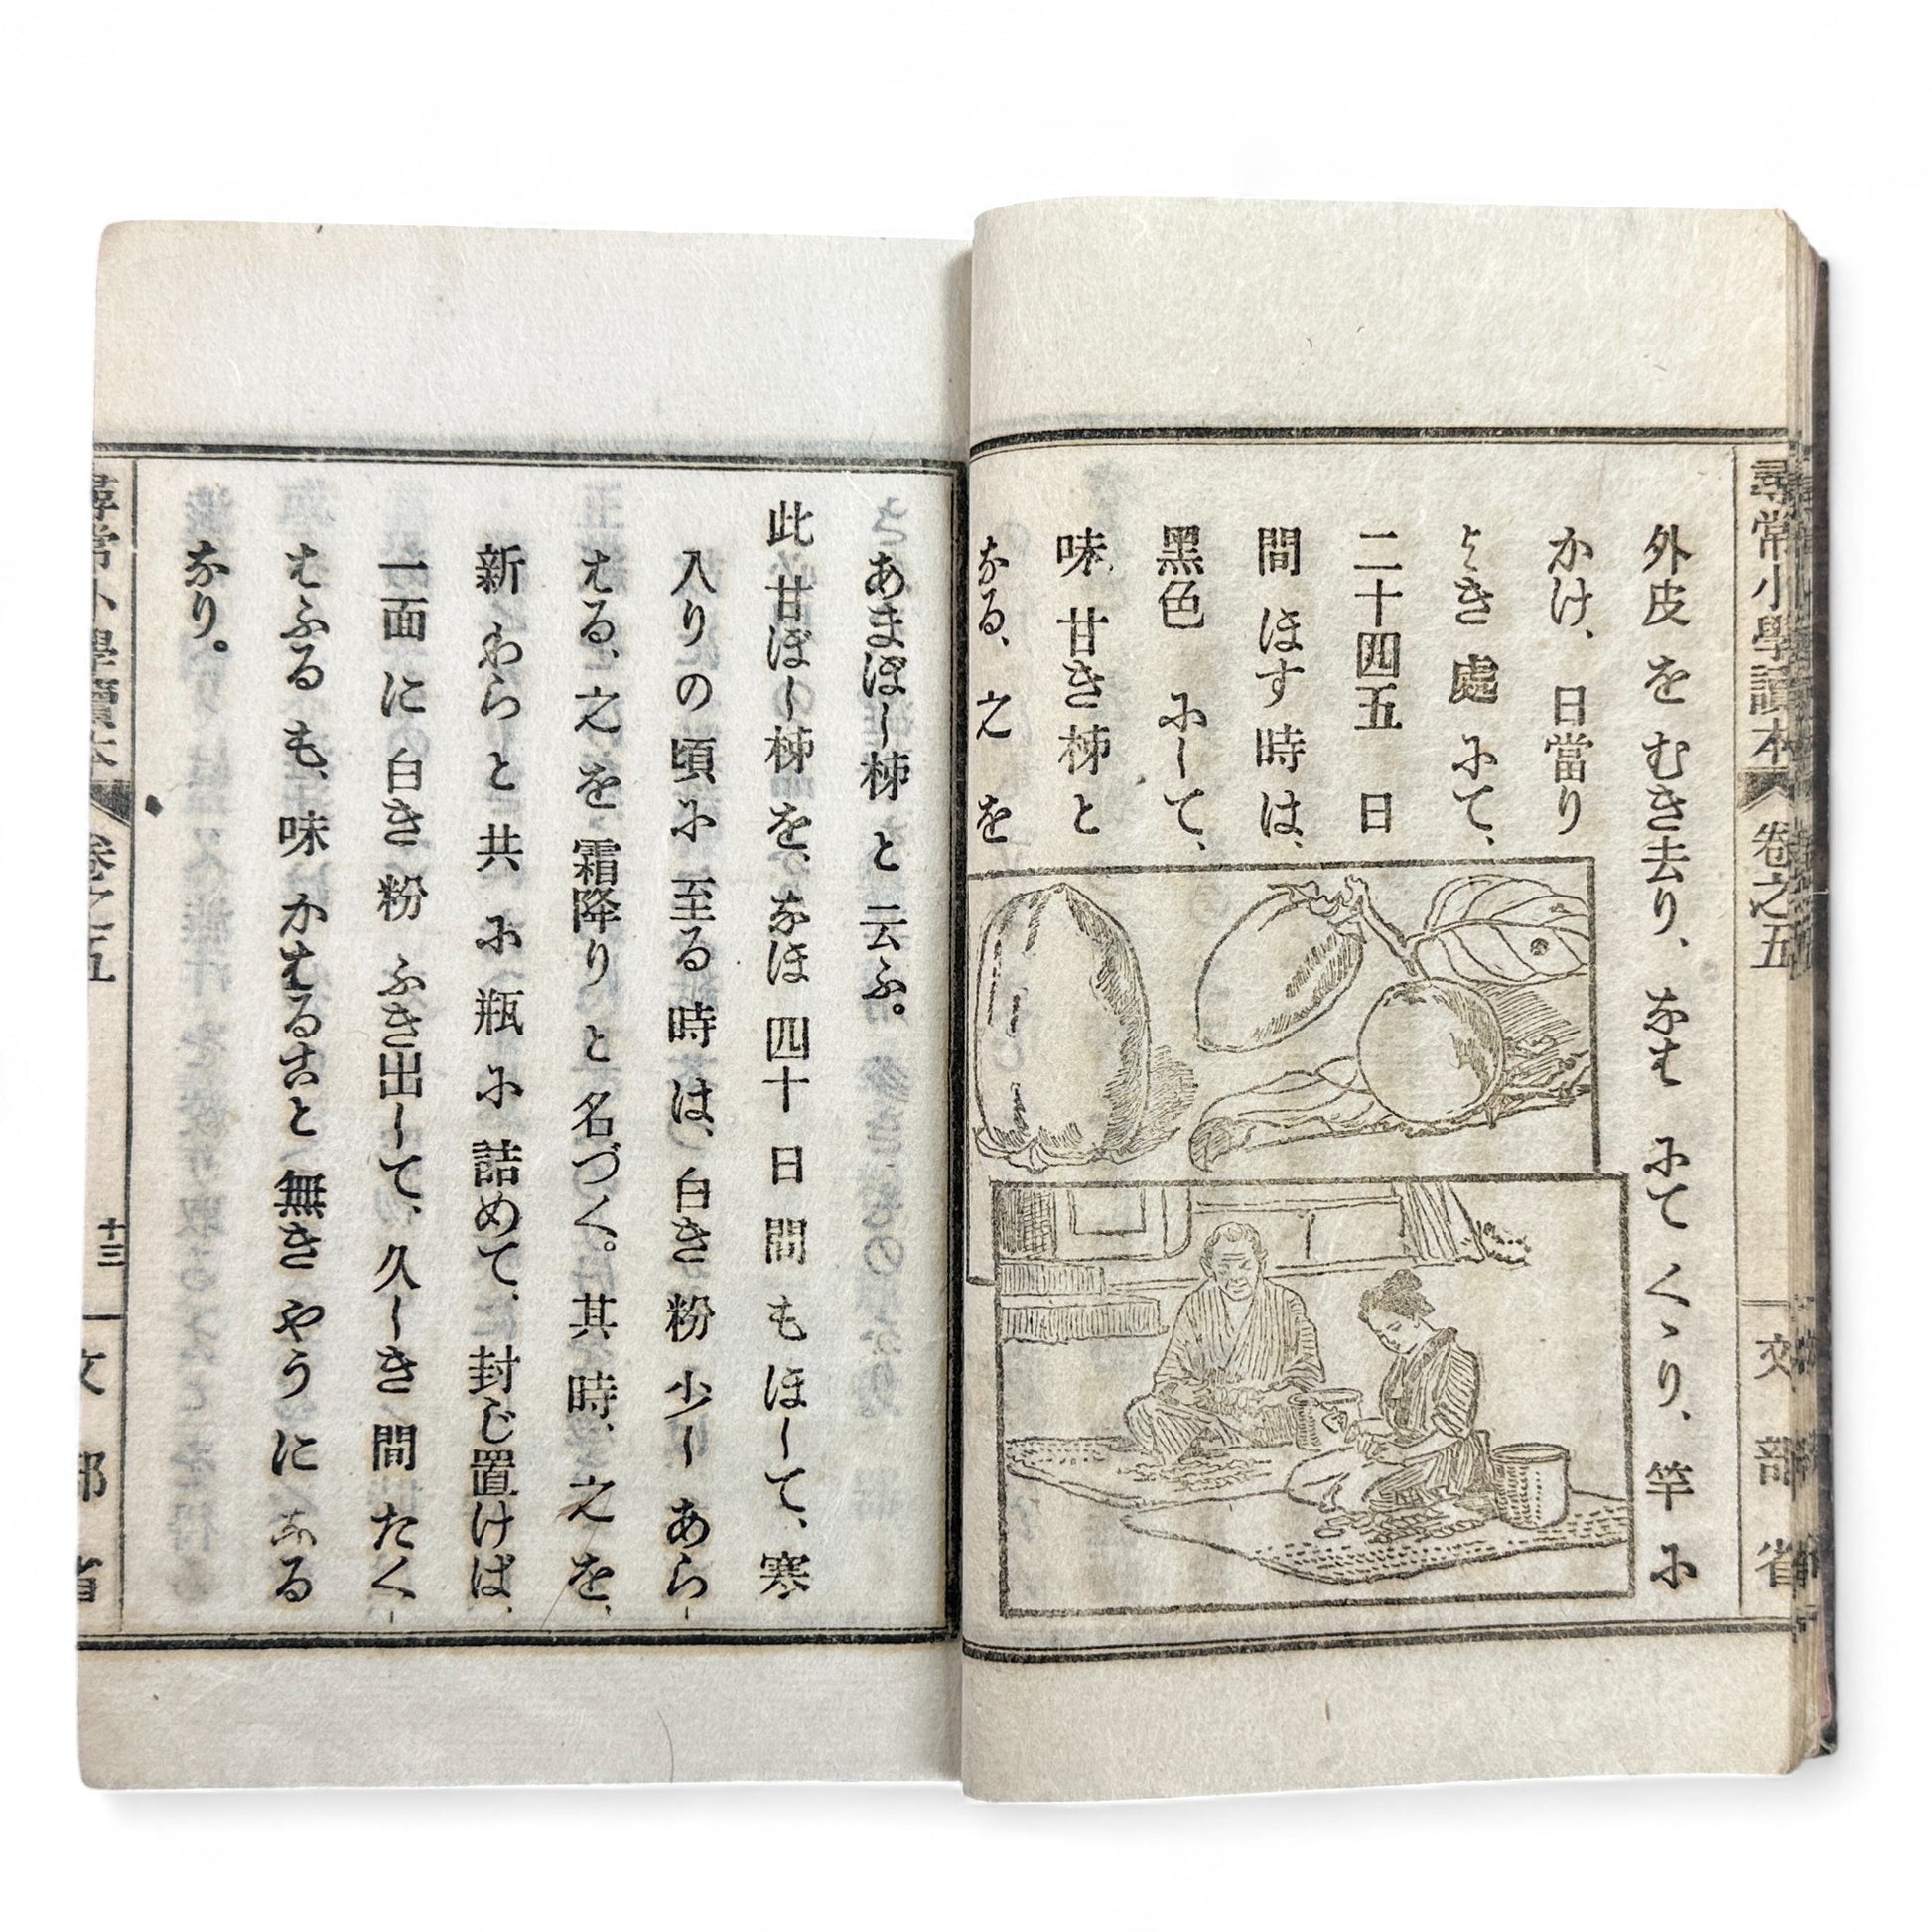 尋常小學讀本 卷之五 文部省
外皮 を むき去り、なは にて くゝり、竿 に
かけ、日當り
よき 處 にて、
二十四五 日
間 ほす 時 は、
黑色 にして、
味 甘き 柹 と
なる、之 を
あまぼし柹 と 云ふ。
此 甘ぼし柹 を、なほ 四十 日 間 も ほして、寒
入り の 頃 に 至る 時 は、白き 粉 少し あら
はる、之 を 霜降り と 名づく。其 時、之 を、
新 わら と 共 に 瓶 に 詰めて、封じ置けば、
一面 に 白き 粉 ふき出して、久しき 間 たく
はふる も、味 かはること 無き やうに なる
なり。
尋常小學讀本 卷之五 十三 文部省